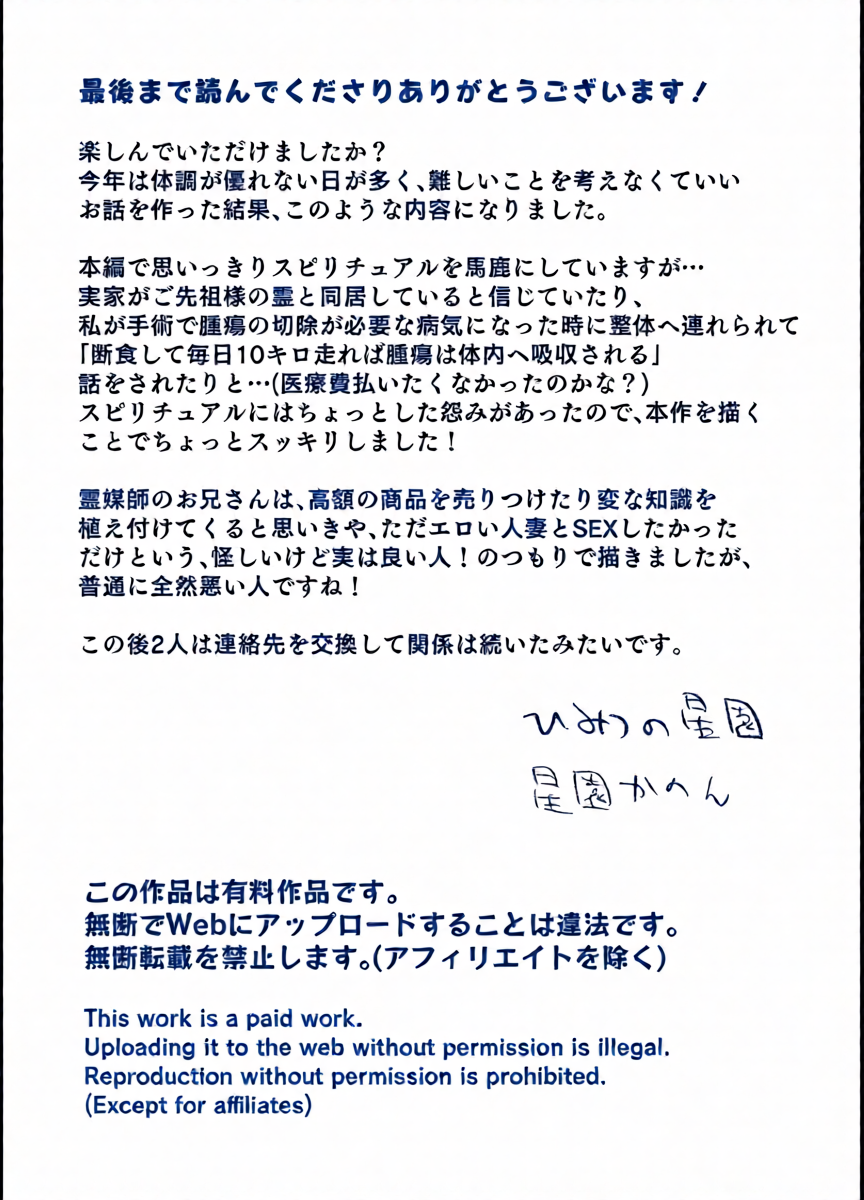 最後まで読んでくださりありがとうございます！
楽しんでいただけましたか？
今年は体調が優れない日が多く、難しいことを考えなくていい
お話を作った結果、このような内容になりました。
本編で思いっきりスピリチュアルを馬鹿にしていますが…
実家がご先祖様の霊と同居していると信じていたり、
私が手術で腫瘍の切除が必要な病気になった時に整体へ連れられて
「断食して毎日10キロ走れば腫瘍は体内へ吸収される」
話をされたりと…(医療費払いたくなかったのかな？)
スピリチュアルにはちょっとした怨みがあったので、本作を描く
ことでちょっとスッキリしました！
霊媒師のお兄さんは、高額の商品を売りつけたり変な知識を
植え付けてくると思いきや、ただエロい人妻とSEXしたかった
だけという、怪しいけど実は良い人！のつもりで描きましたが、
普通に全然悪い人ですね！
この後2人は連絡先を交換して関係は続いたみたいです。
ひみつの星園
星園かのん
この作品は有料作品です。
無断でWebにアップロードすることは違法です。
無断転載を禁止します。(アフィリエイトを除く)
This work is a paid work.
Uploading it to the web without permission is illegal.
Reproduction without permission is prohibited.
(Except for affiliates)